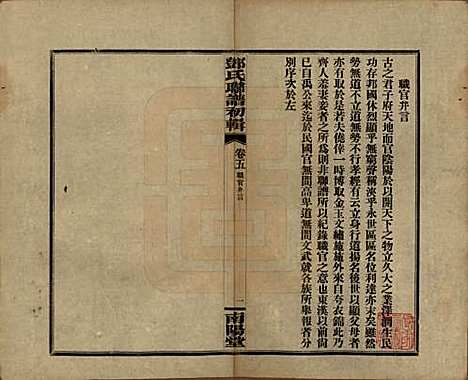 職官弁言
古之君子府天地而官陰陽於以開天下之物立久大之業洋溢生民
功存邦國休烈顯乎無窮聲稱浹乎永世區區名位利達亦末矣雖然
勞無道不立道無勞不行孝經有云立身行道揚名後世以顯父母者
亦有取於是若夫倖一時博取金玉文繡施施外來自夸衣錦此乃
齊人羞妻妾者之所為則非聯譜所以紀錄職官之意也東漢以前
已自禹公來迄於民國官無間高卑道無間文武就各族所舉報者分
別序次於左
鄧氏聯譜初輯
卷五
職官弁言
一
南陽堂